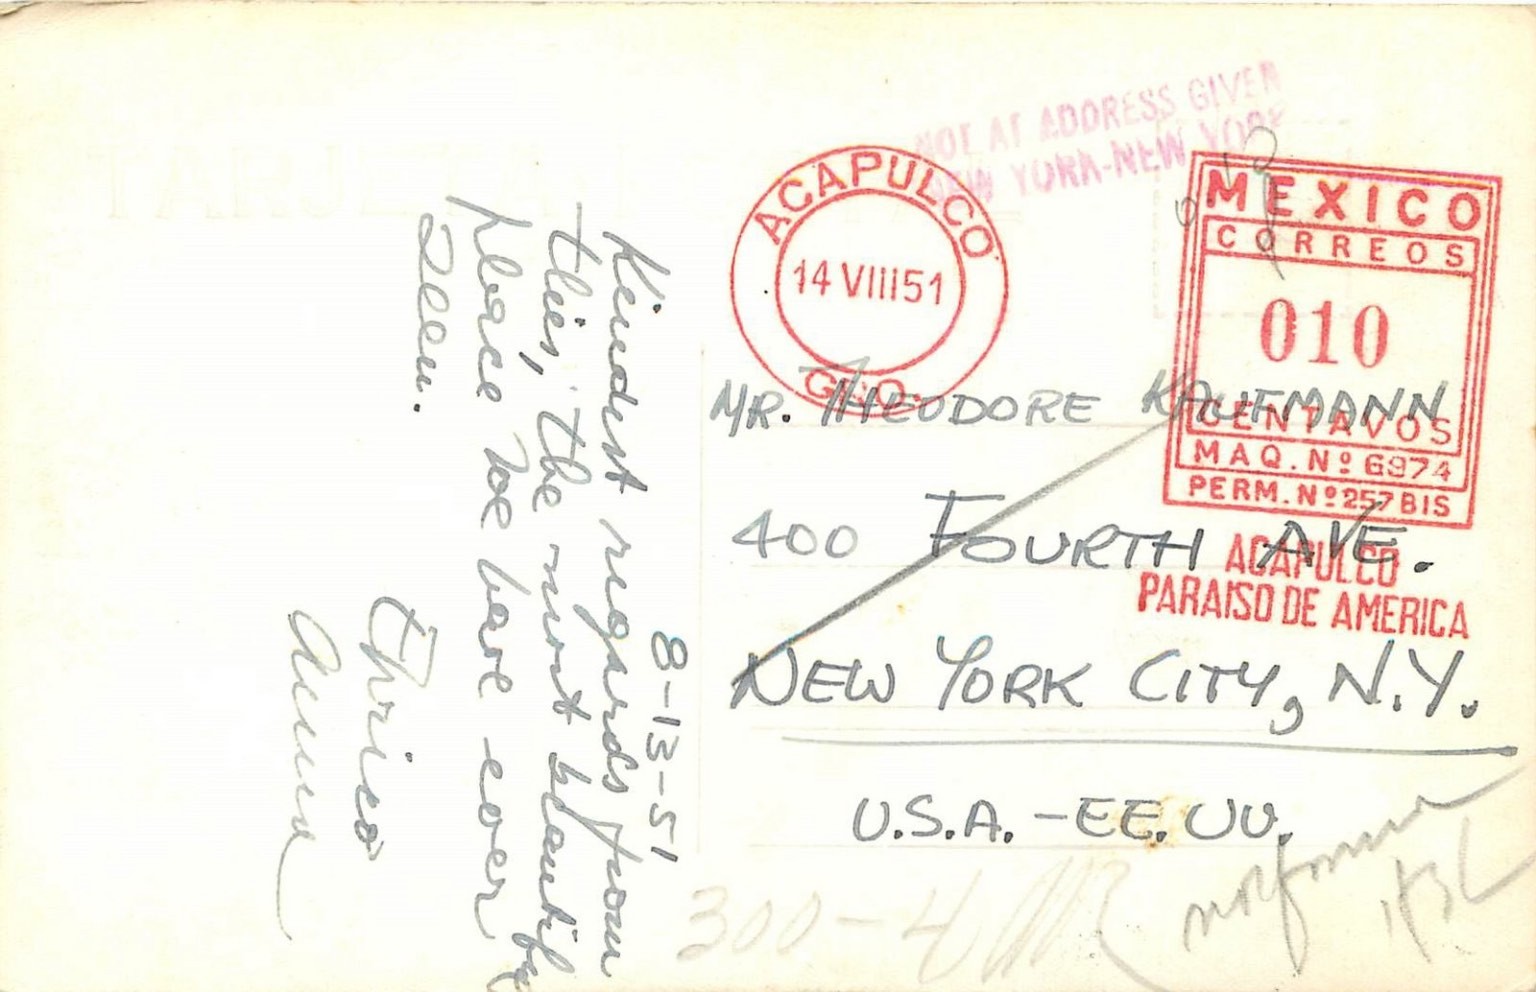 TARJETA POSTAL
NOT AT ADDRESS GIVEN
NEW YORK-NEW YORK
ACAPULCO
14 VIII 51
GRO.
MEXICO
CORREOS
010
CENTAVOS
MAQ. Nº 6974
PERM. Nº 257 BIS
ACAPULCO
PARAISO DE AMERICA
8-13-51
Kindest regards from
this, the most beautiful
place we have ever
seen.
Enrico
Anna
MR. THEODORE KAUFMANN
400 FOURTH AVE.
NEW YORK CITY, N.Y.
U.S.A. - EE. UU.
300-4